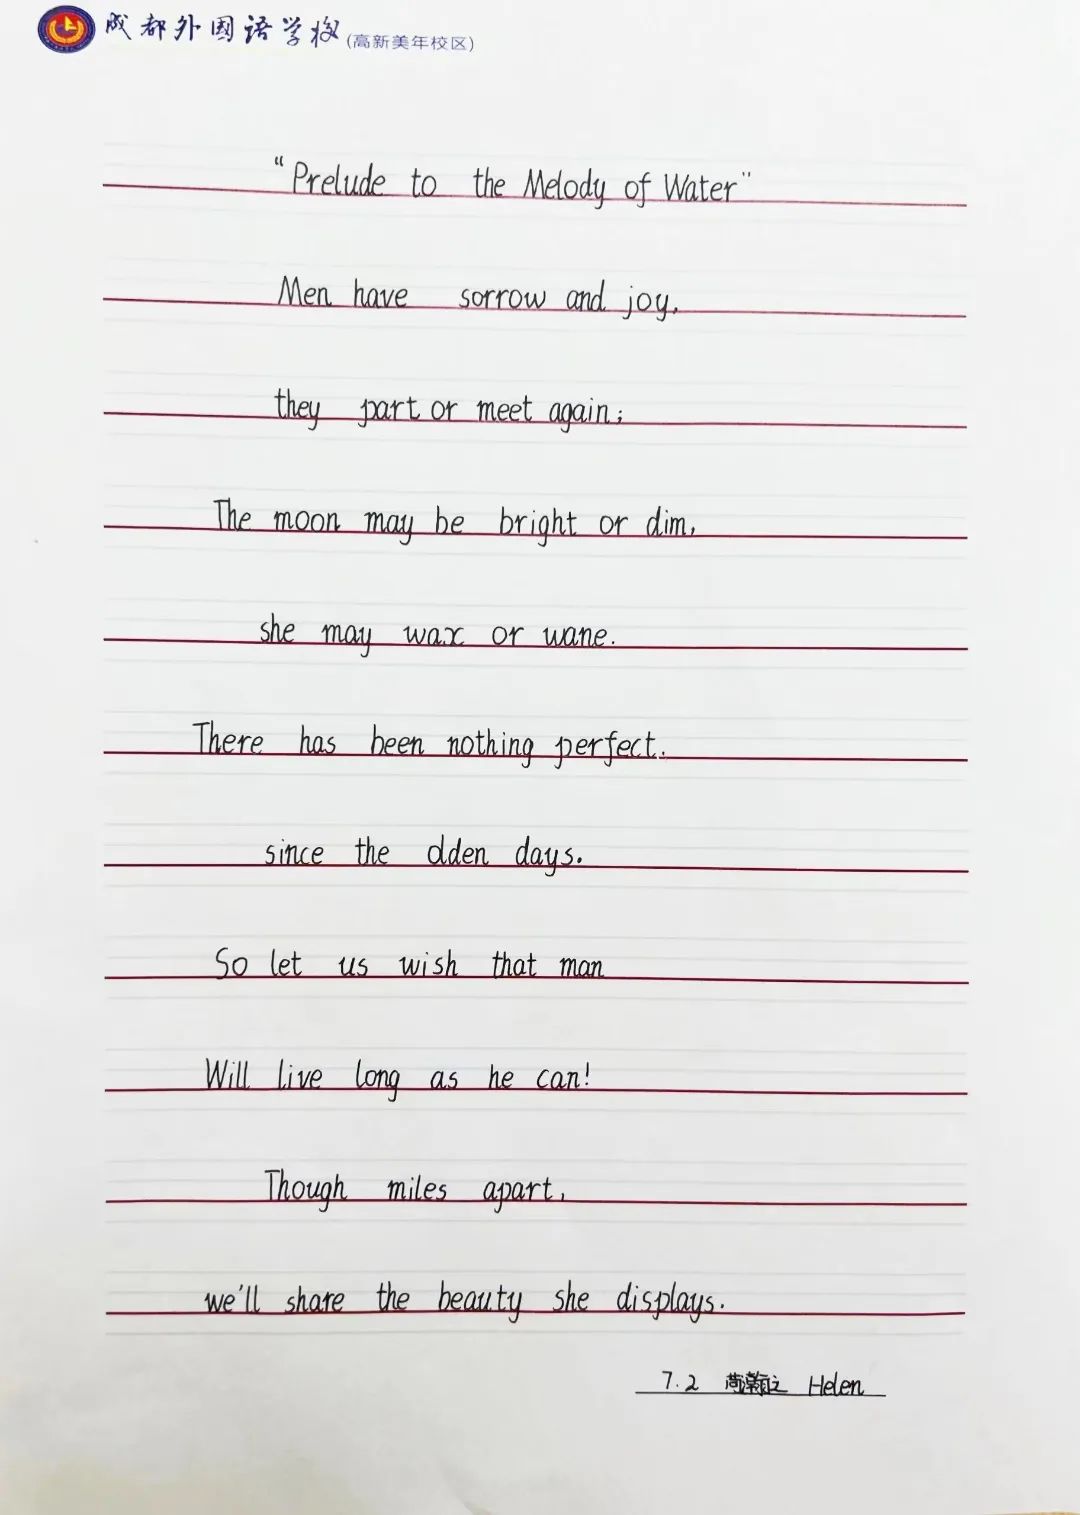 成都外国语学校(高新美年校区)
"Prelude to the Melody of Water"
Men have sorrow and joy,
they part or meet again;
The moon may be bright or dim,
she may wax or wane.
There has been nothing perfect.
since the olden days.
So let us wish that man
Will live long as he can!
Though miles apart,
we'll share the beauty she displays.
7.2 Helen